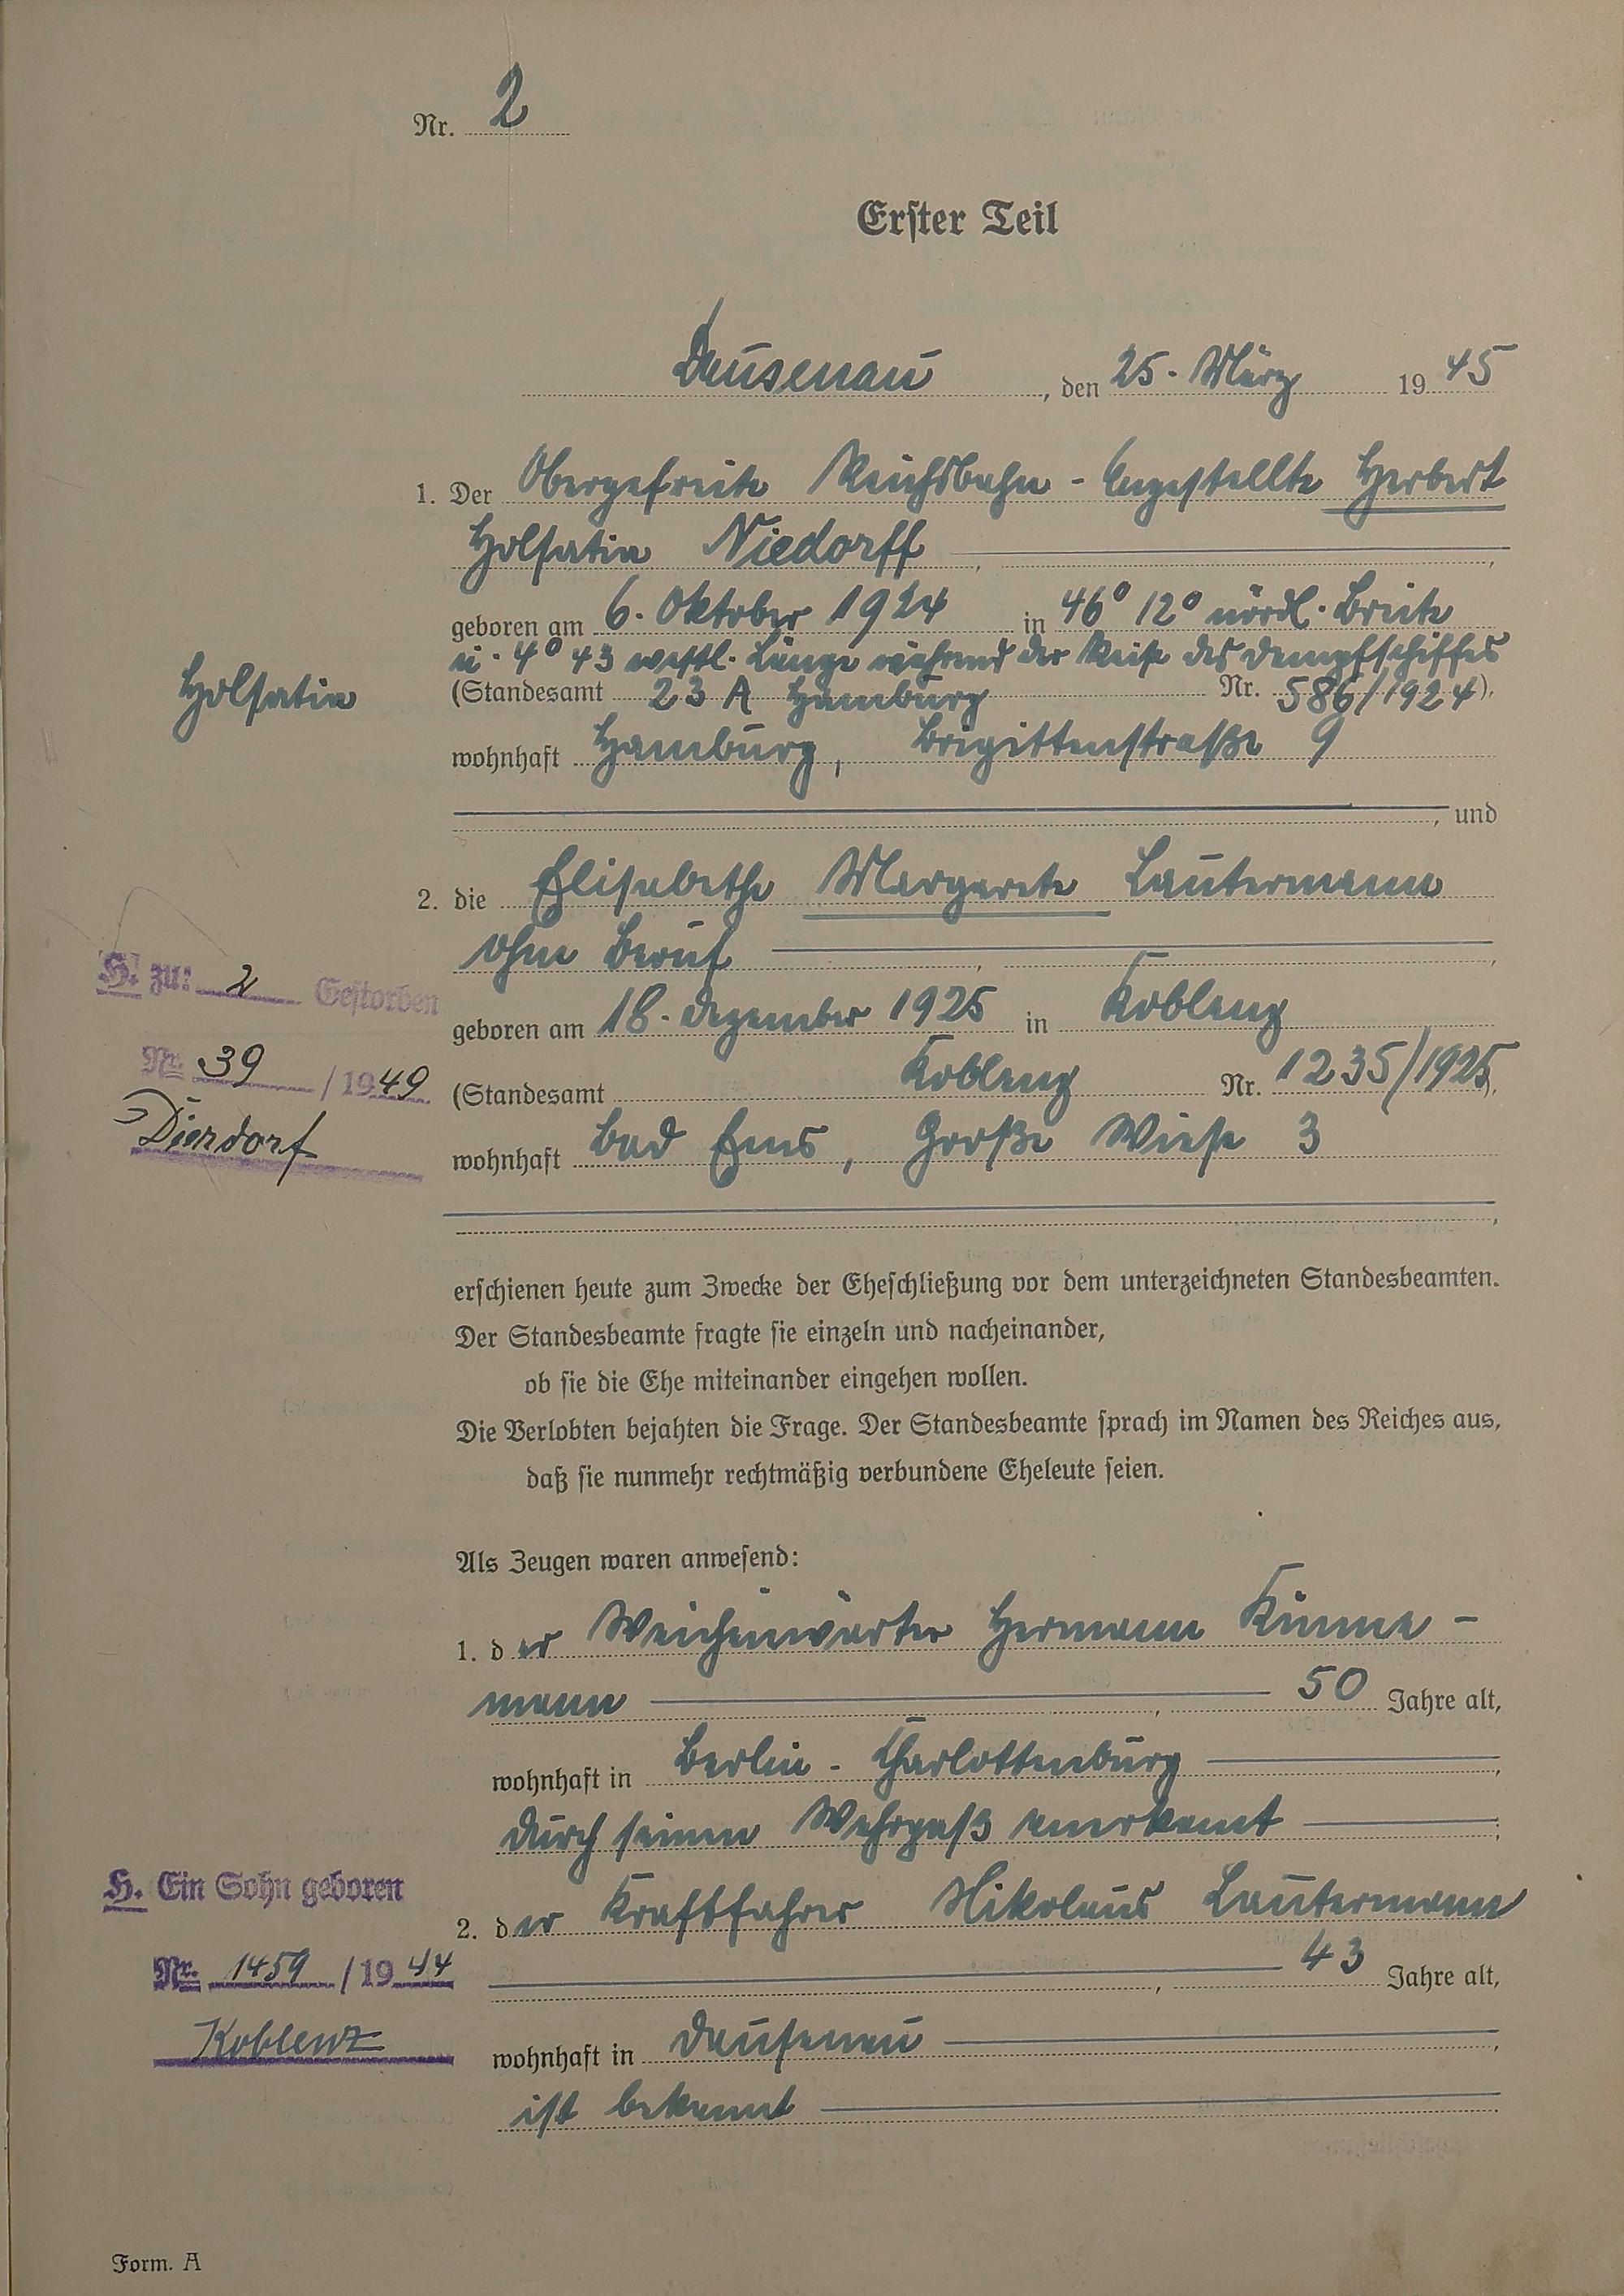 Nr. 2
Erster Teil
Dausenau, den 25. März 1945
1. Der Obergefreite Reichsbahn-Angestellte Herbert
Holsatia Niedorff,
geboren am 6. Oktober 1924 in 46° 12° nördl. Breite
u. 4° 43 westl. Länge während der Reise des Dampfschiffes
Holsatia
(Standesamt 23 A Hamburg Nr. 586/1924),
wohnhaft Hamburg, Brigittenstraße 9
, und
2. die Elisabethe Margarete Lautermann
ohne Beruf,
H. zu: 2 Gestorben
geboren am 18. Dezember 1925 in Koblenz
Nr. 39 / 1949
(Standesamt Koblenz Nr. 1235/1925),
Dierdorf
wohnhaft Bad Ems, Große Wiese 3
,
erschienen heute zum Zwecke der Eheschließung vor dem unterzeichneten Standesbeamten.
Der Standesbeamte fragte sie einzeln und nacheinander,
ob sie die Ehe miteinander eingehen wollen.
Die Verlobten bejahten die Frage. Der Standesbeamte sprach im Namen des Reiches aus,
daß sie nunmehr rechtmäßig verbundene Eheleute seien.
Als Zeugen waren anwesend:
1. der Weichenwärter Hermann
mann, 50 Jahre alt,
wohnhaft in Berlin-Charlottenburg,
durch seinen Wehrpaß anerkannt;
H. Ein Sohn geboren
2. der Kraftfahrer Nikolaus Lautermann
Nr. 1459 / 1944
, 43 Jahre alt,
Koblenz
wohnhaft in Dausenau,
ist bekannt
Form. A